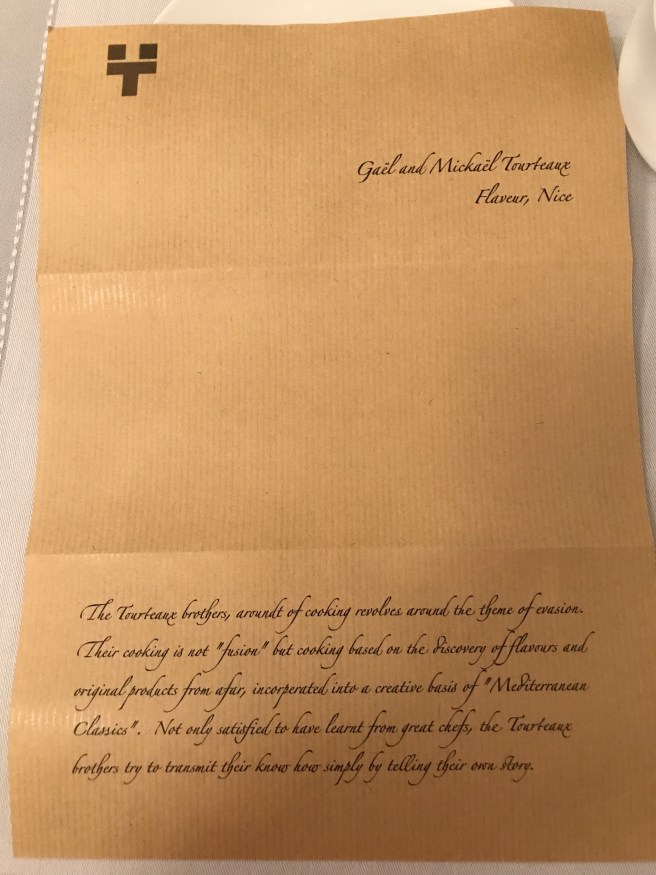 Gaël and Mickaël Tourteaux
Flaveur, Nice
The Tourteaux brothers, aroundt of cooking revolves around the theme of evasion.
Their cooking is not "fusion" but cooking based on the discovery of flavours and
original products from afar, incorperated into a creative basis of "Mediterranean
Classics". Not only satisfied to have learnt from great chefs, the Tourteaux
brothers try to transmit their know how simply by telling their own story.